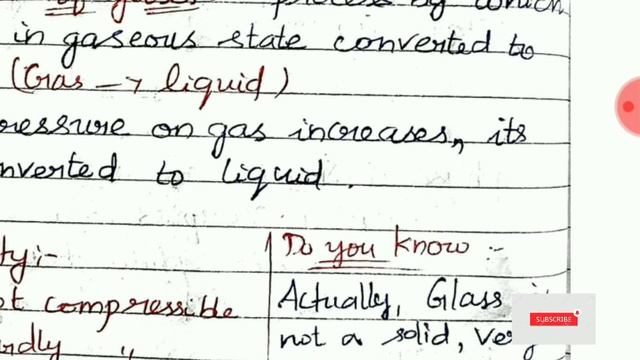 of gases process by which
in gaseous state converted to
(Gas → liquid)
ressure on gas increases, its
nverted to liquid.
ty:-
Do you know :-
t compressible
Actually, Glass
not a solid, very
ndly "
SUBSCRIBE